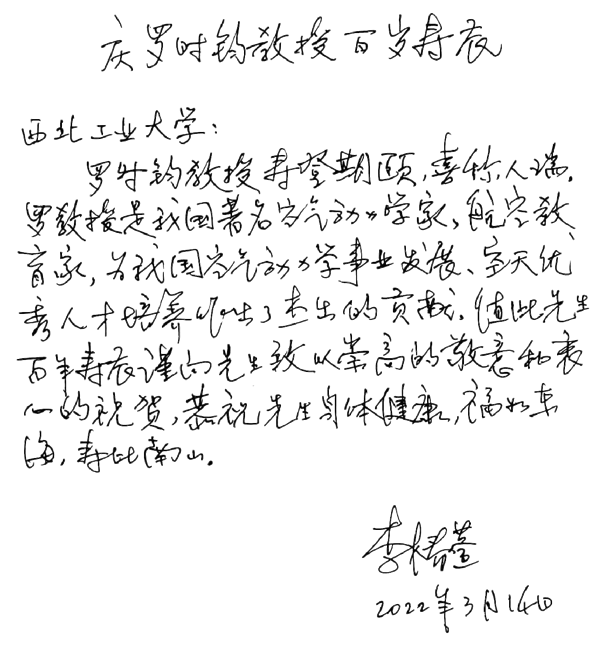 庆罗时钧教授百岁寿辰
西北工业大学:
罗时钧教授寿登期颐,喜称人瑞。
罗教授是我国著名空气动力学家,航空教
育家,为我国空气动力学事业发展、空天优
秀人才培养作出了杰出的贡献。值此先生
百年寿辰谨向先生致以崇高的敬意和衷
心的祝贺,恭祝先生身体健康,福如东
海,寿比南山。
李椿萱
2022年3月14日